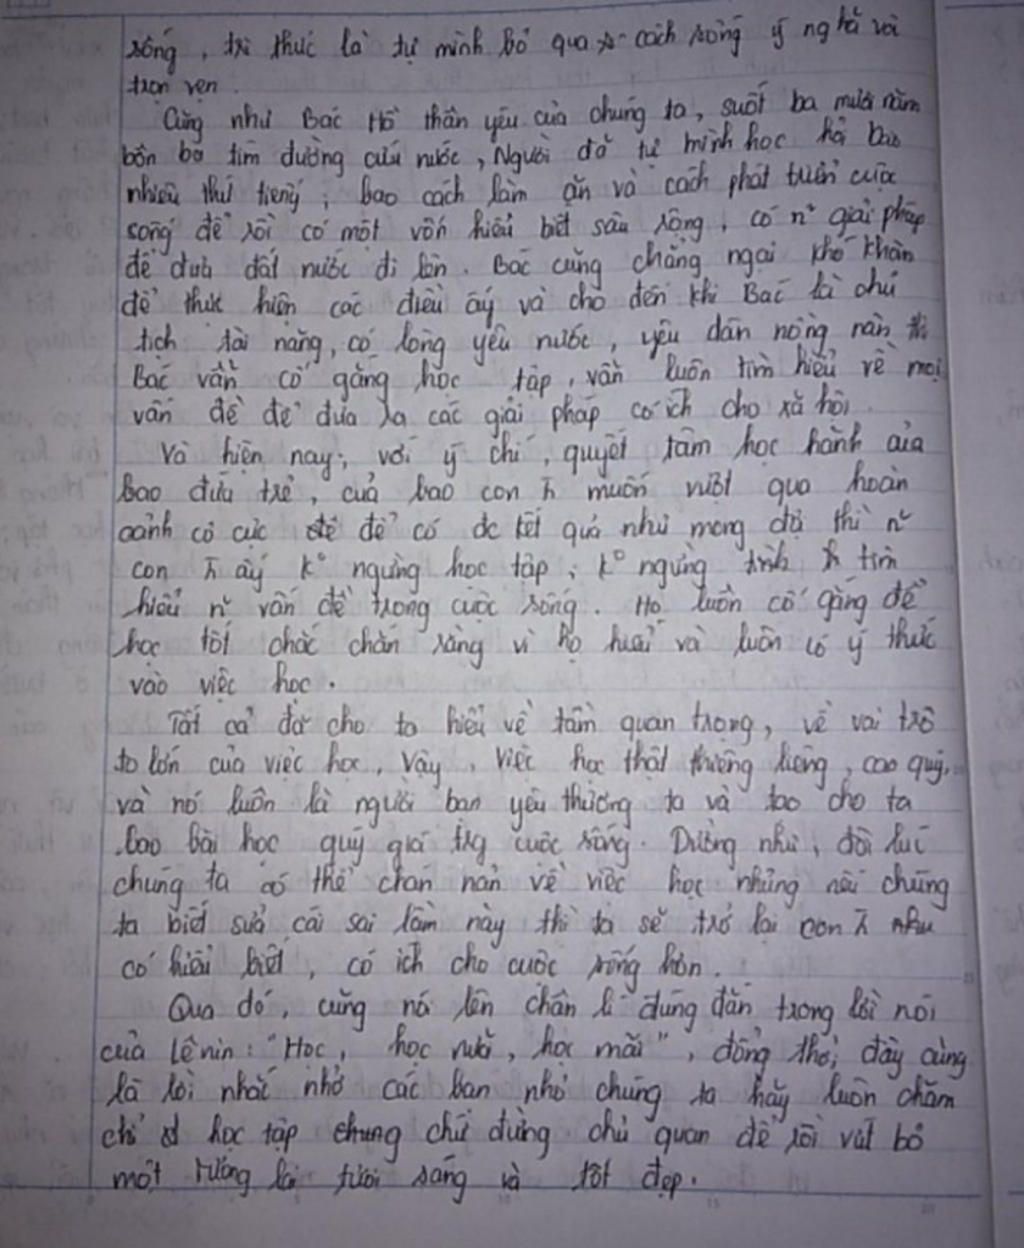 sống, tri thức là tự mình bỏ qua cách sống ý nghĩa và
trọn vẹn.
Cũng như Bác Hồ thân yêu của chúng ta, suốt ba mươi năm
bôn ba tìm đường cứu nước, Người đã tự mình học hỏi bao
nhiêu thứ tiếng, bao cách làm ăn và cách phát triển cuộc
sống để rồi có một vốn hiểu biết sâu rộng, có n~ giải pháp
để đưa đất nước đi lên. Bác cũng chẳng ngại khó khăn
để thực hiện các điều ấy và cho đến khi Bác là chủ
tịch tài năng, có lòng yêu nước, yêu dân nồng nàn thì
Bác vẫn cố gắng học tập, vẫn luôn tìm hiểu về mọi
vấn đề để đưa ra các giải pháp có ích cho xã hội.
Và hiện nay, với ý chí, quyết tâm học hành của
bao đứa trẻ, của bao con ng muốn vượt qua hoàn
cảnh cơ cực để có đc kết quả như mong đợi thì n~
con ng ấy k° ngừng học tập, k° ngừng tìm
hiểu n~ vấn đề trong cuộc sống. Họ luôn cố gắng để
học tốt chắc chắn rằng vì họ hiểu và luôn có ý thức
vào việc học.
Tất cả đã cho ta hiểu về tầm quan trọng, về vai trò
to lớn của việc học, vậy, việc học thật thiêng liêng, cao quý,
và nó luôn là người bạn yêu thương ta và tạo cho ta
bao bài học quý giá trg cuộc sống. Dường như, đôi lúc
chúng ta có thể chán nản về việc học nhưng nếu chúng
ta biết sửa cái sai lầm này thì ta sẽ trở lại con ng như
có hiểu biết, có ích cho cuộc sống hơn.
Qua đó, cũng nói lên chân lí đúng đắn trong lời nói
của Lênin: "Học, học nữa, học mãi", đồng thời, đây cũng
là lời nhắc nhở các bạn nhỏ chúng ta hãy luôn chăm
chỉ học tập chung chứ đừng chủ quan để rồi vứt bỏ
một tương lai tươi sáng và tốt đẹp.